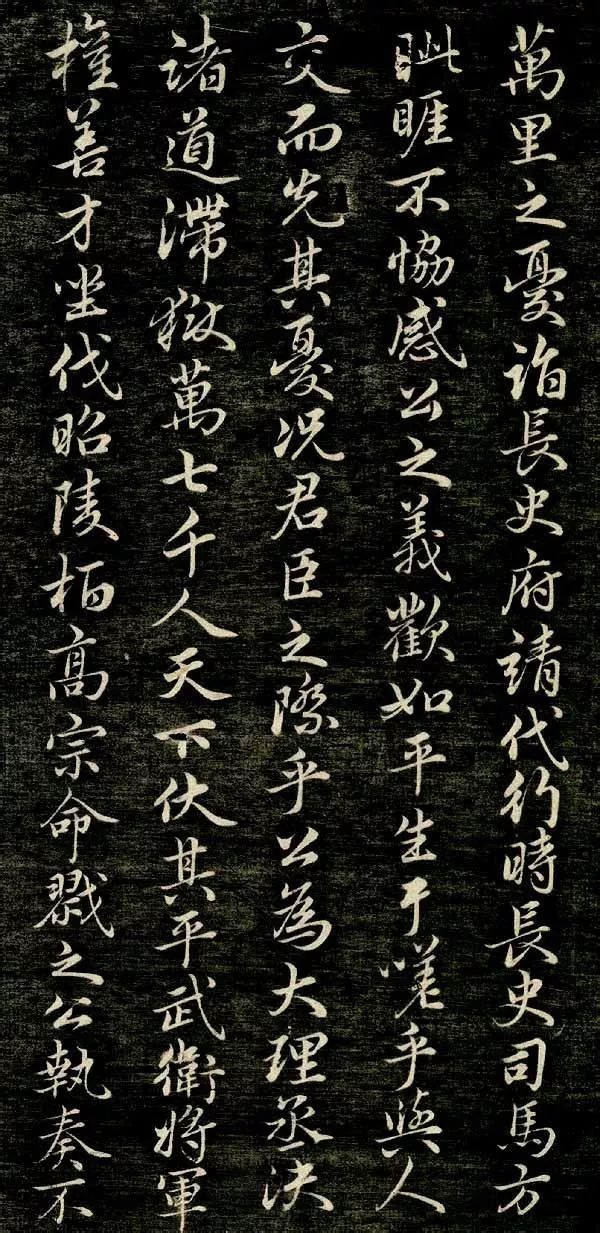 萬里之憂詣長史府請代行時長史司馬方
眦睢不協感公之義歡如平生于嗟乎與人
交而先其憂况君臣之際乎公為大理丞決
諸道滯獄萬七千人天下伏其平武衛將軍
權善才坐伐昭陵栢高宗命戮之公執奏不